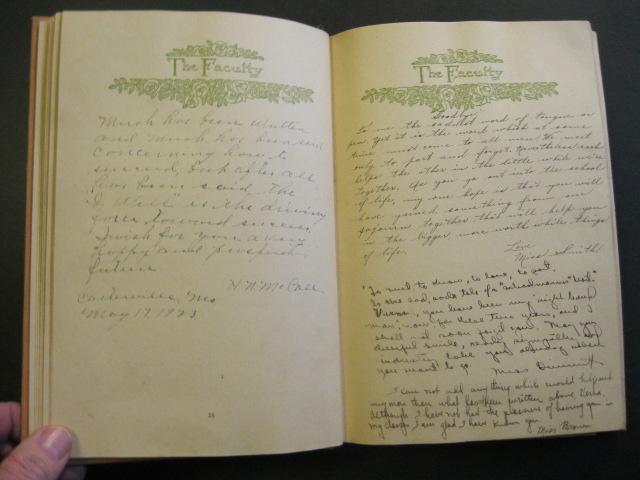 The Faculty
Much has been written
and much has been said
concerning how to
succeed, but after all
has been said the
"I Will" is the driving
force toward success
I wish for you a very
happy and prosperous
future
H. N. McCall
Carterville, Mo
May 17, 1923
38
The Faculty
Goodbye
To me the saddest word of tongue or
pen. Yet it is the word which at some
time must come to all. We meet
only to part and forget. Nevertheless each
helps the other in the little while we're
together. As you go out into the school
of life, my one hope is that you will
have gained something from our
sojourn together that will help you
in the bigger, more worth while things
of life.
Love
Miss Smith
"So much to know, to love, to
So she said, and a tale of a
Verna, you have been my "right hand
man" now for these two years, and I
shall not soon forget you. May your
cheerful smile, ready sympathy and
industry take you already where
you want to go.
Miss
I can not add anything which would help you
any more than what has been written above, Verna.
Although I have not had the pleasure of having you in
my class I am glad I have known you.
Miss Brown